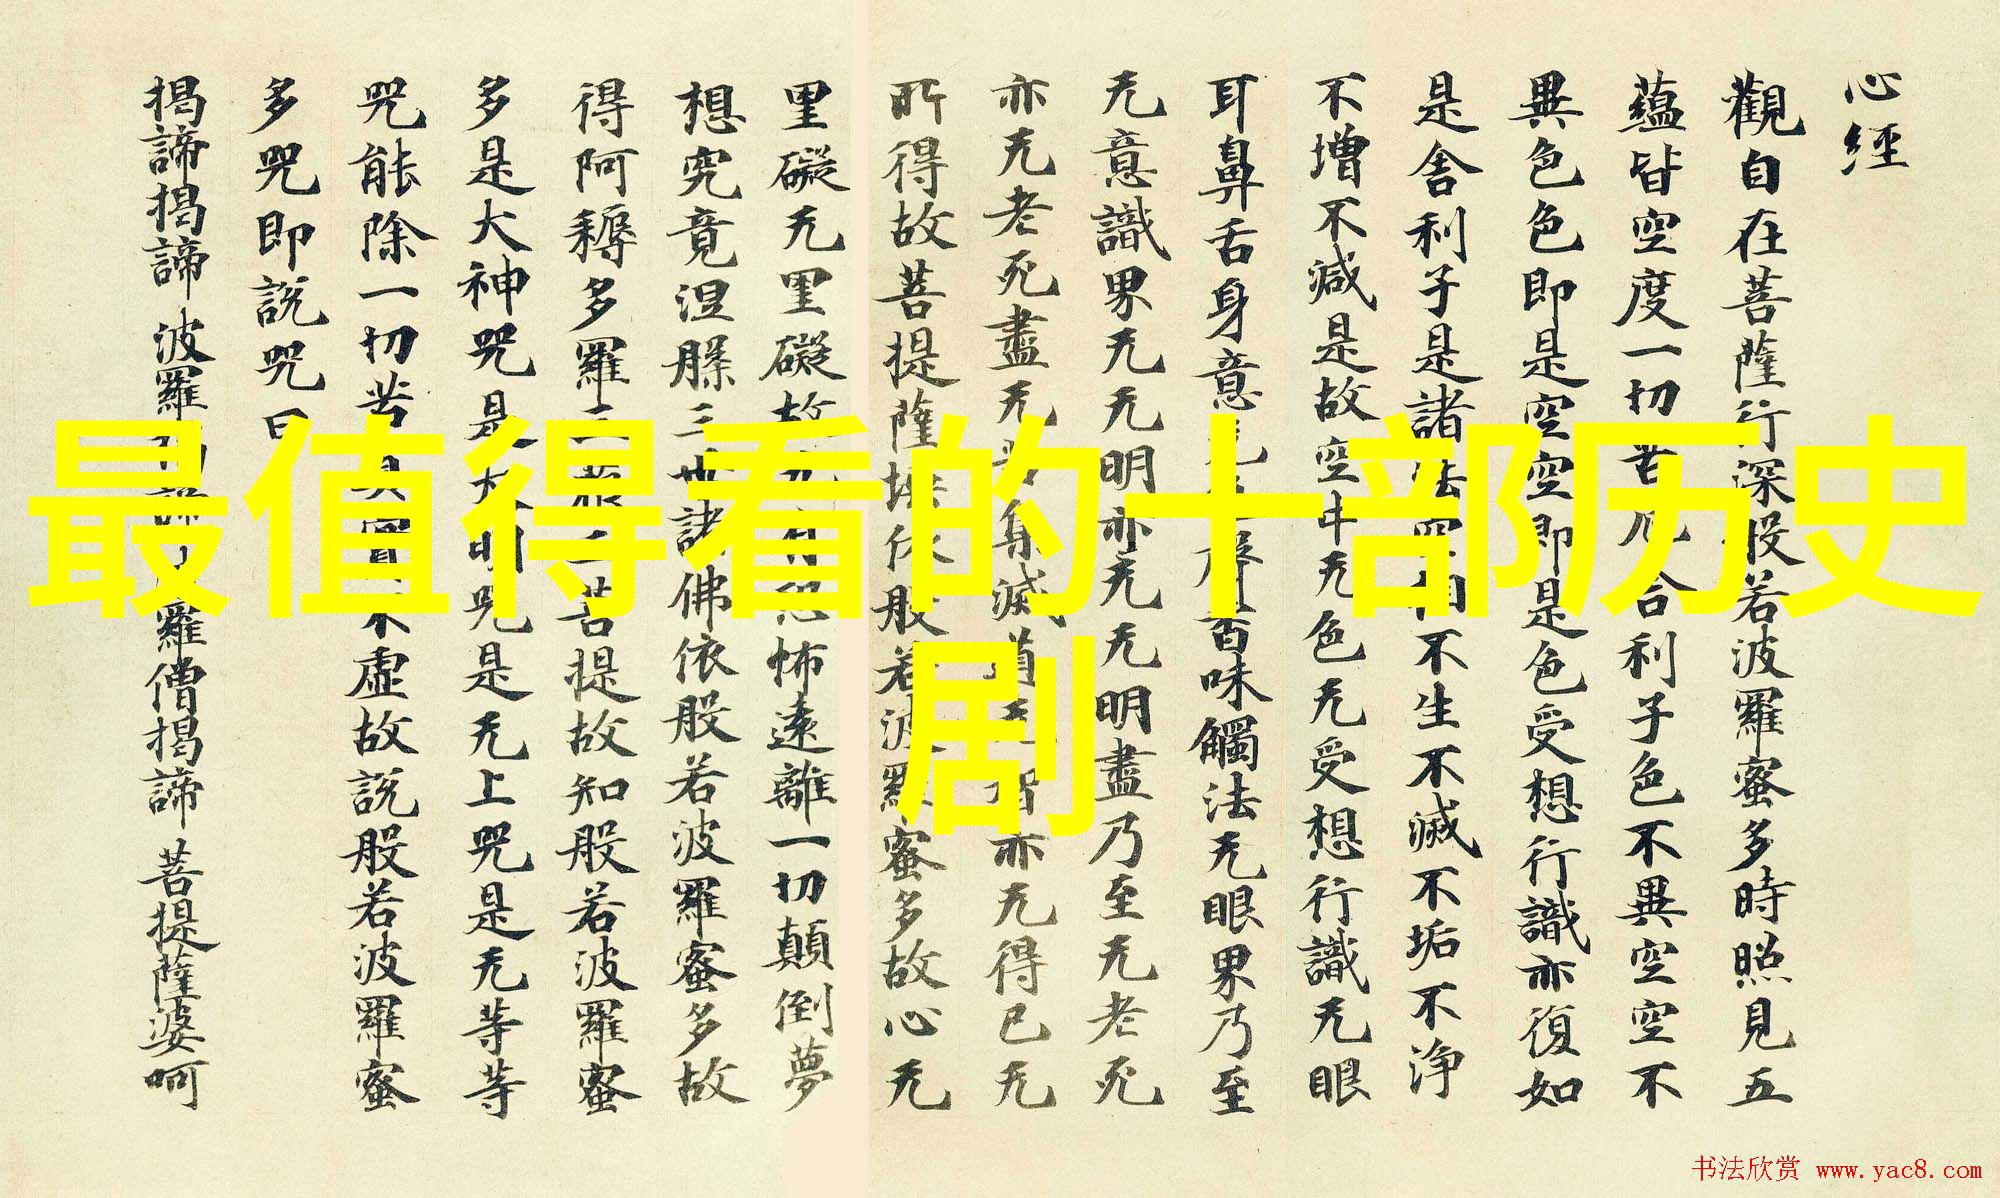 最值得看的十部历史
剧
心經
觀自在菩薩行深般若波羅蜜多時照見五
蘊皆空度一切苦厄舍利子色不異空空不
異色色即是空空即是色受想行識亦復如
是舍利子是諸法空相不生不滅不垢不淨
不增不減是故空中无色无受想行識无眼
耳鼻舌身意聲香味觸法无眼界乃至
无意識界无无明亦无无明盡乃至无老死
亦无老死盡无集滅道智亦无得已无
所得故菩提薩埵依般若波羅蜜多故心无
罣礙无罣礙故有恐怖遠離一切顛倒夢
想究竟涅槃三世諸佛依般若波羅蜜多故
得阿耨多羅三藐菩提故知般若波羅蜜
多是大神咒是大明咒是无上咒是无等等
咒能除一切苦真實不虛故說般若波羅蜜
多咒即說咒曰
揭諦揭諦 波羅諦 羅僧揭諦 菩提薩婆呵
书法欣赏 www.yac8.com